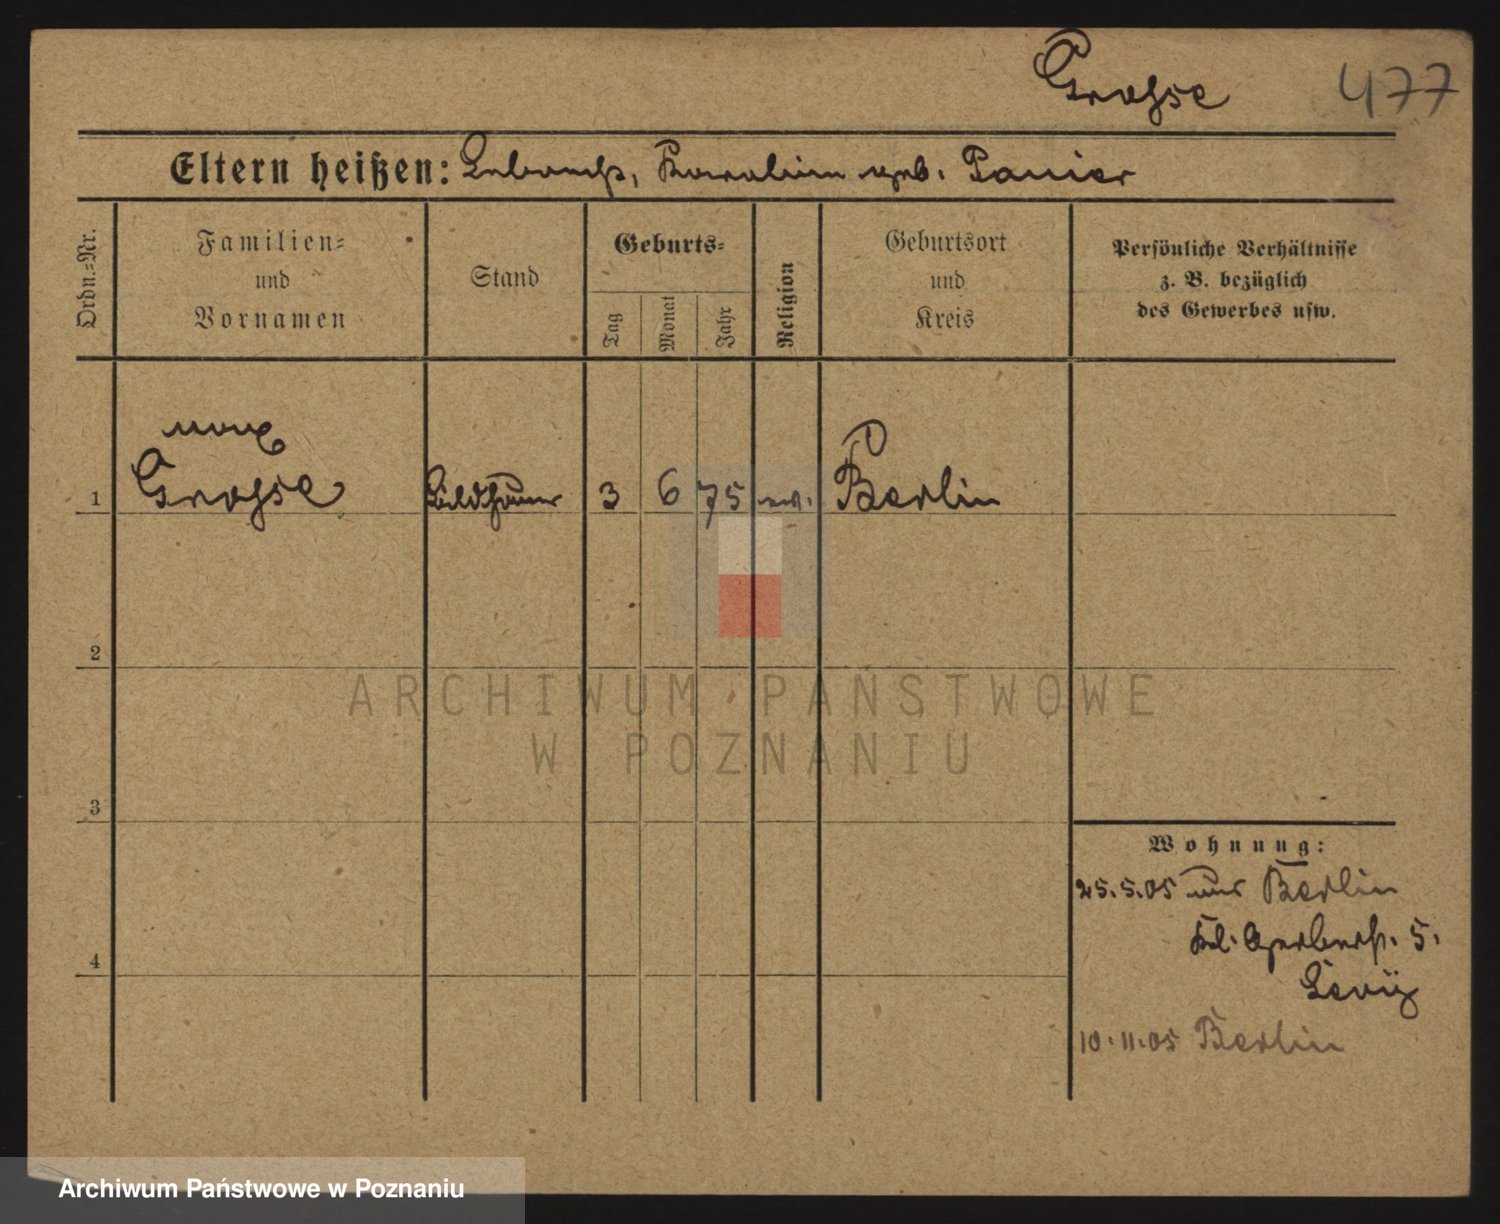 Grosse 477
Eltern heißen: Karoline geb. Panier
Ordn.=Nr.
Familien=
und
Vornamen
Stand
Geburts=
Tag
Monat
Jahr
Religion
Geburtsort
und
Kreis
Persönliche Verhältnisse
z. B. bezüglich
des Gewerbes usw.
Max
1 Grosse Bildhauer 3 6 75 ev. Berlin
2
3
4
Wohnung:
25.5.05 aus Berlin
Kl. Gerberst. 5.
Levÿ
10.11.05 Berlin
ARCHIWUM PAŃSTWOWE
W POZNANIU
Archiwum Państwowe w Poznaniu